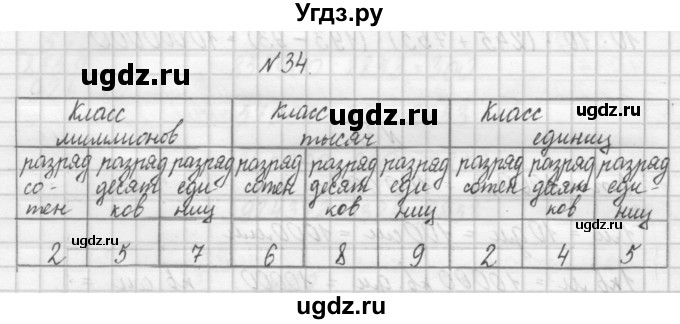 Угдз.ру
№34.
ugdz.ru ugdz.ru ugdz.ru
Класс миллионов Класс тысяч Класс единиц
разряд сотен разряд десятков разряд единиц разряд сотен разряд десятков разряд единиц разряд сотен разряд десятков разряд единиц
2 5 7 6 8 9 2 4 5
ugdz.ru ugdz.ru ugdz.ru
ugdz.ru